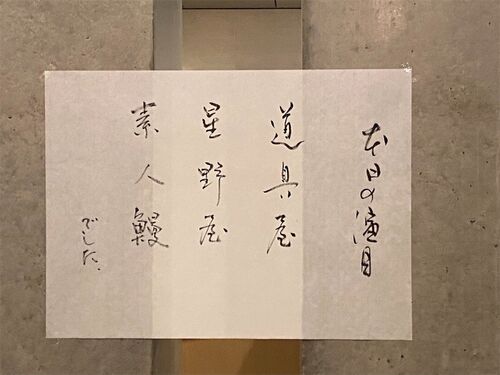 本日の演目
道具屋
星野屋
素人鰻
でした。